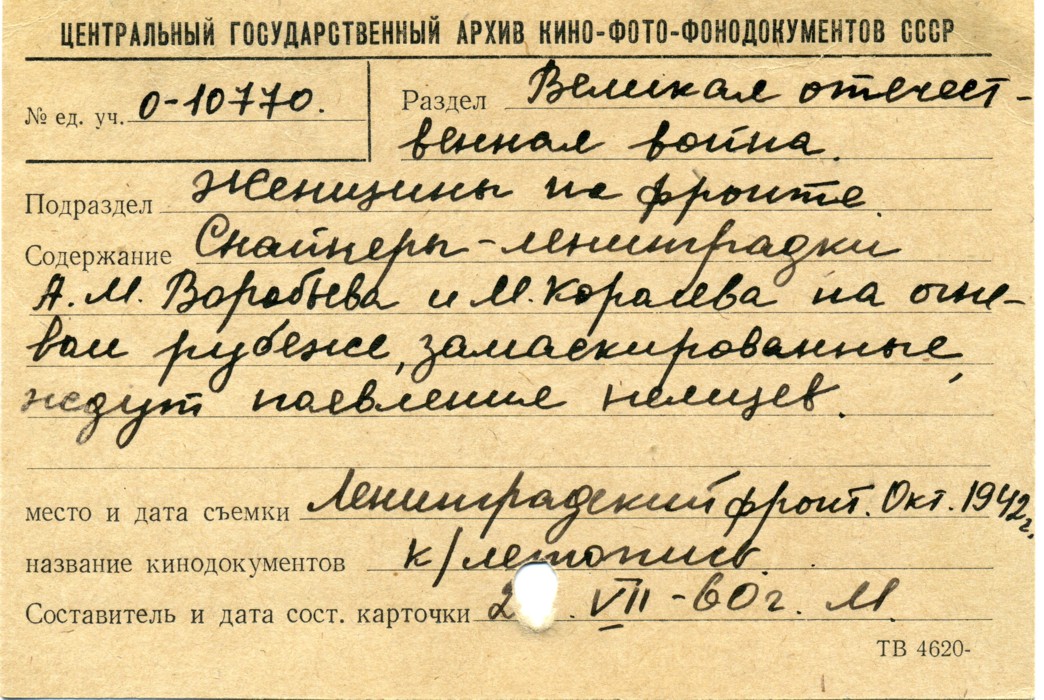 ЦЕНТРАЛЬНЫЙ ГОСУДАРСТВЕННЫЙ АРХИВ КИНО-ФОТО-ФОНОДОКУМЕНТОВ СССР
№ ед. уч. 0-10770.
Раздел Великая отечест-
венная война.
Подраздел Женщины на фронте.
Содержание Снайперы-ленинградки
А.М. Воробьева и М. Королева на огне-
вом рубеже, замаскированные,
ждут появления немцев.
место и дата съемки Ленинградский фронт. Окт. 1942г.
название кинодокументов к/летопись.
Составитель и дата сост. карточки 2 . VII-60г. М
ТВ 4620-